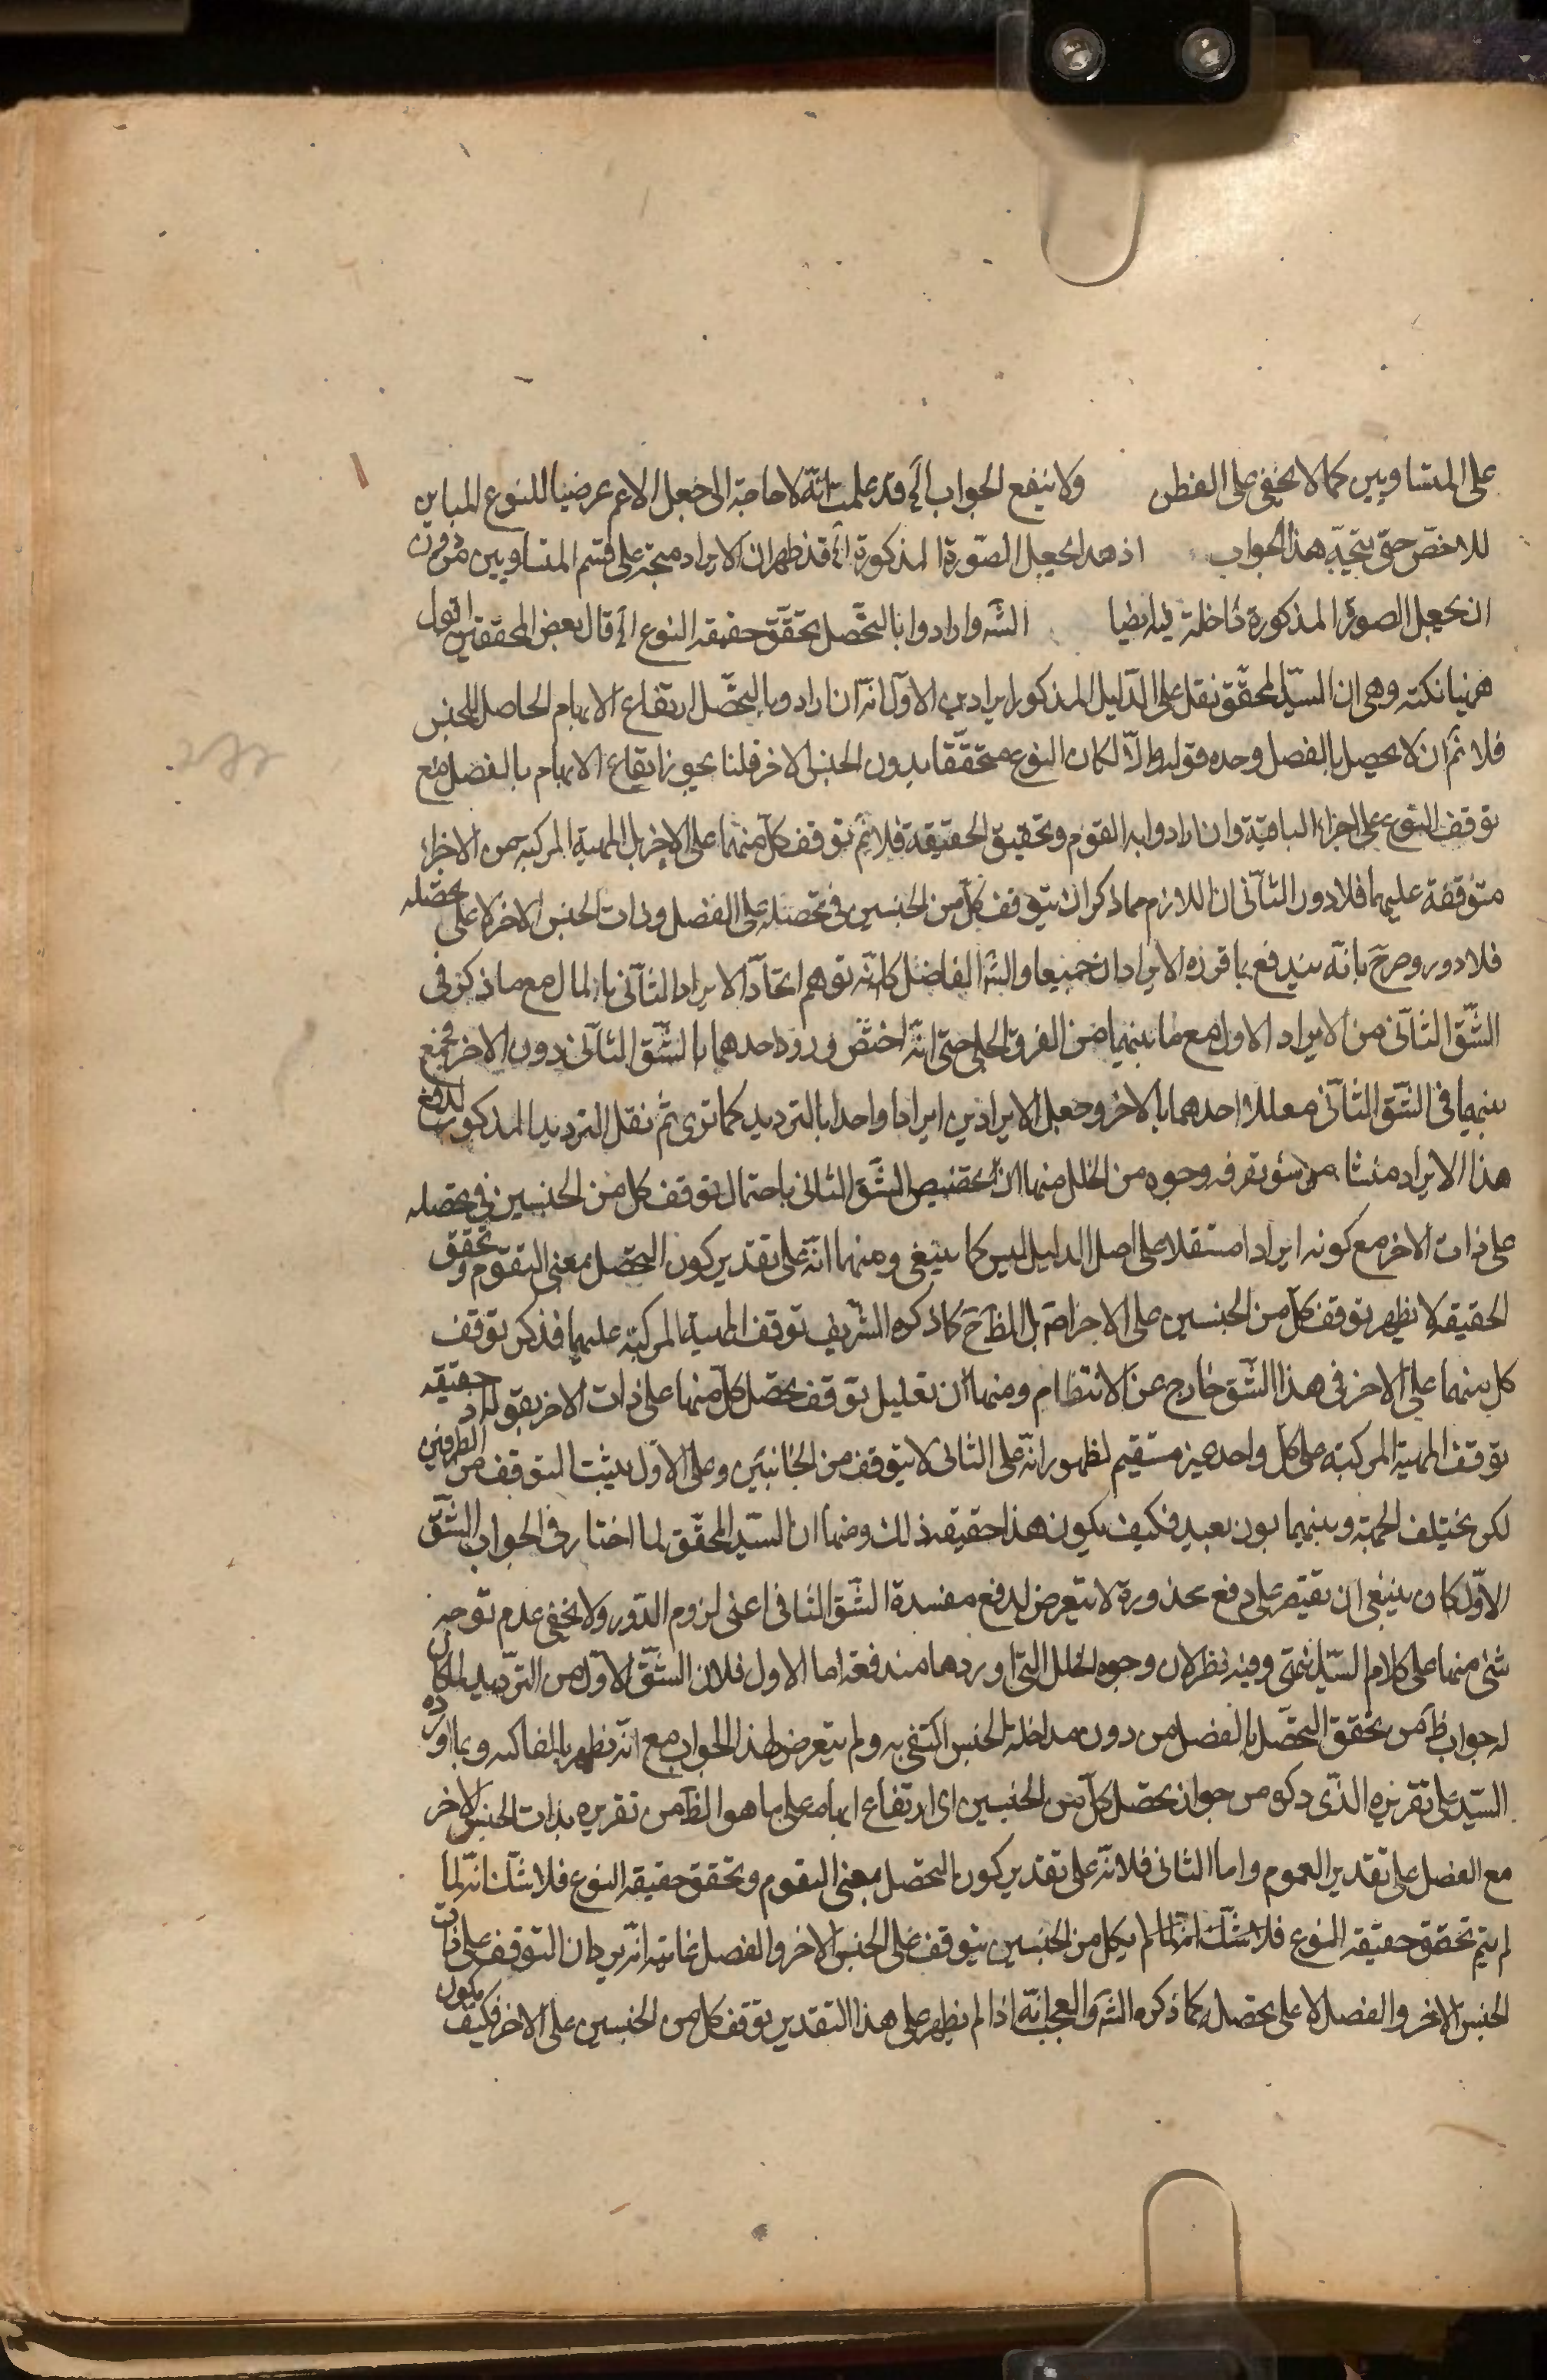 على المتساويين كما لا يخفى على الفطن ولا ينفع الجواب آه قد علمت انّه لا حاجة الى جعل الاعم عرضيا للنوع المباين
للاخصّ حتى يتجّه هذا الجواب اذ هذا يجعل الصّورة المذكورة آه قد ظهر ان الايراد متجه على قسم المتساويين من دون
ان يجعل الصورة المذكورة داخلة فيه ايضا الشّه وارادوا بالتحصّل تحقّق حقيقة النوع آه قال بعض المحققين اقول
ههنا نكتة وهى ان السيّد المحقّق نقل على الدّليل المذكور ايرادين الاوّل انّه ان ارادوا بالتحصّل ارتفاع الابهام الحاصل للجنس
فلا نمّ ان لا يحصل بالفصل وحده قوله والّا لكان النوع متحقّقا بدون الجنس الاخر قلنا يجوز ارتفاع الابهام بالفصل مع
توقف النوع على اجزائه الباقية وان ارادوا به القوم وتحقيق الحقيقة فلا نمّ توقف كلّ منهما على الاخر بل المهيّة المركبة من الاجزاء
متوقفة عليهما فلا دور الثّانى ان اللازم مما ذكر ان يتوقف كلّ من الجنسين فى تحصّله على الفصل وذات الجنس الاخر لا على تحصّله
فلا دور وصرح بانّه يندفع بما قرره الايرادان جميعا والشّه الفاضل كانّه توهم اتحاد الايراد الثّانى بالمال مع ما ذكر فى
الشّق الثّانى من الايراد الاول مع ما بينهما من الفرق الجلى حتى انّه اختصّ ورود احدهما بالشّق الثّانى دون الاخر فجمع
بينهما فى الشّق الثّانى معللا احدهما بالاخر وجعل الايرادين ايرادا واحدا بالترديد كما ترى ثمّ نقل الترديد المذكور لدفع
هذا الايراد منشا من سوء تقرفه وجوه من الخلل منها ان تخصيص الشّق الثانى باحتمال توقف كل من الجنسين فى تحصله
على ذات الاخر مع كونه ايرادا مستقلا على اصل الدليل ليس كما ينبغى ومنها انّه على تقدير كون التحصّل بمعنى التقوّم وتحقق
الحقيقة لا يظهر توقف كلّ من الجنسين على الاخر اصّ بل الظّ ح كما ذكره الشّريف توقف المهيّة المركبة عليهما فذكر توقف
كل منهما على الاخر فى هذا الشّق خارج عن الانتظام ومنها ان تعليل توقف تحصّل كلّ منهما على ذات الاخر بقوله اذ حقيقة
توقف المهيّة المركبة على كل واحد غير مستقيم لظهور انّه على الثانى لا يتوقف من الجانبين وعلى الاوّل يثبت التوقف من الطرفين
لكن يختلف الجهة وبينهما بون بعيد فكيف يكون هذا حقيقة ذلك ومنها ان السيّد المحقّق لما اختار فى الجواب الشّق
الاوّل كان ينبغى ان يقتصر على دفع محذوره لا يتعرض لدفع مفسدة الشّق الثانى اعنى لزوم الدّور ولا يخفى عدم توجه
شئ منها على كلام السيّد انتهى وفيه نظر لان وجوه الخلل التى اوردها مندفعة اما الاول فلان الشّق الاوّل من الترديد لما كان
له جواب ظّ من تحقق التحصّل بالفصل من دون مداخلة الجنس اكتفى به ولم يتعرض لهذا الجواب مع انّه يظهر بالمقايسه وبما اورده
السيّد على تقريره الذّى ذكره من جواز تحصّل كلّ من الجنسين اى ارتفاع ابهامه على ما هو الظّ من تقريره بذات الجنس الاخر
مع الفصل على تقدير العموم واما الثانى فلانّه على تقدير كون التحصّل بمعنى التقوم وتحقق حقيقة النوع فلا شكّ انّه لما
لم يتم تحقق حقيقة النوع فلا شكّ انّه لما لم يكل من الجنسين يتوقف على الجنس الاخر والفصل غايته انّه يردان التوقف على ذات
الجنس الاخر والفصل لا على تحصّله كما ذكره الشّه والعجب انّه اذا لم يظهر على هذا التقدير توقف كل من الجنسين على الاخر فكيف يكون